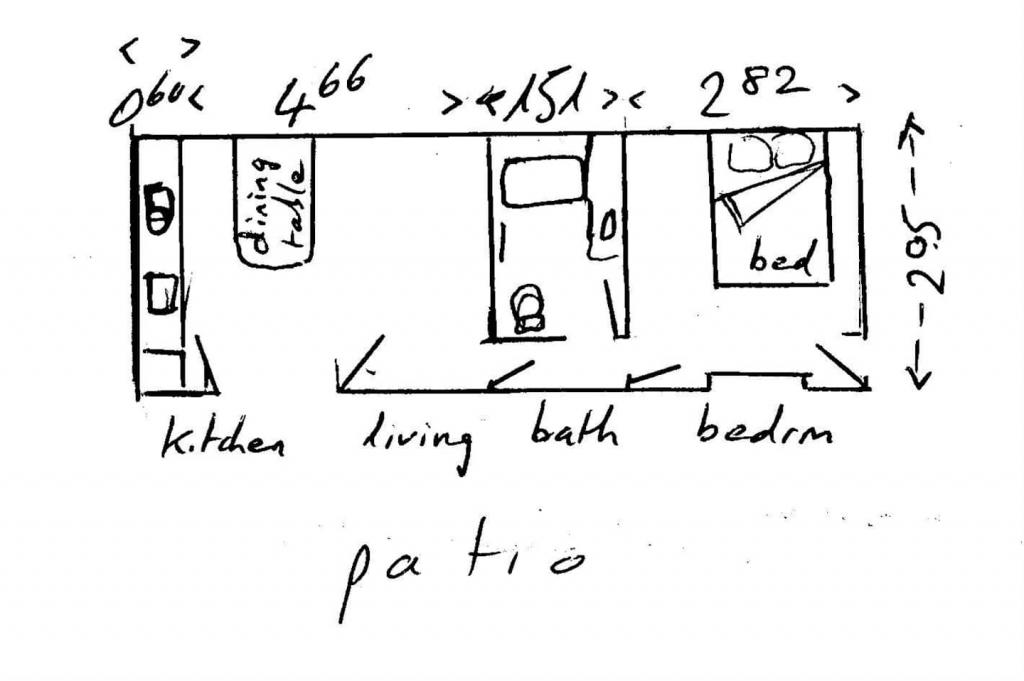 < >
0⁶⁰ < 4⁶⁶ > < 151 > < 2⁸² >
dining
table
bed
< 295 >
kitchen living bath bedrm
patio